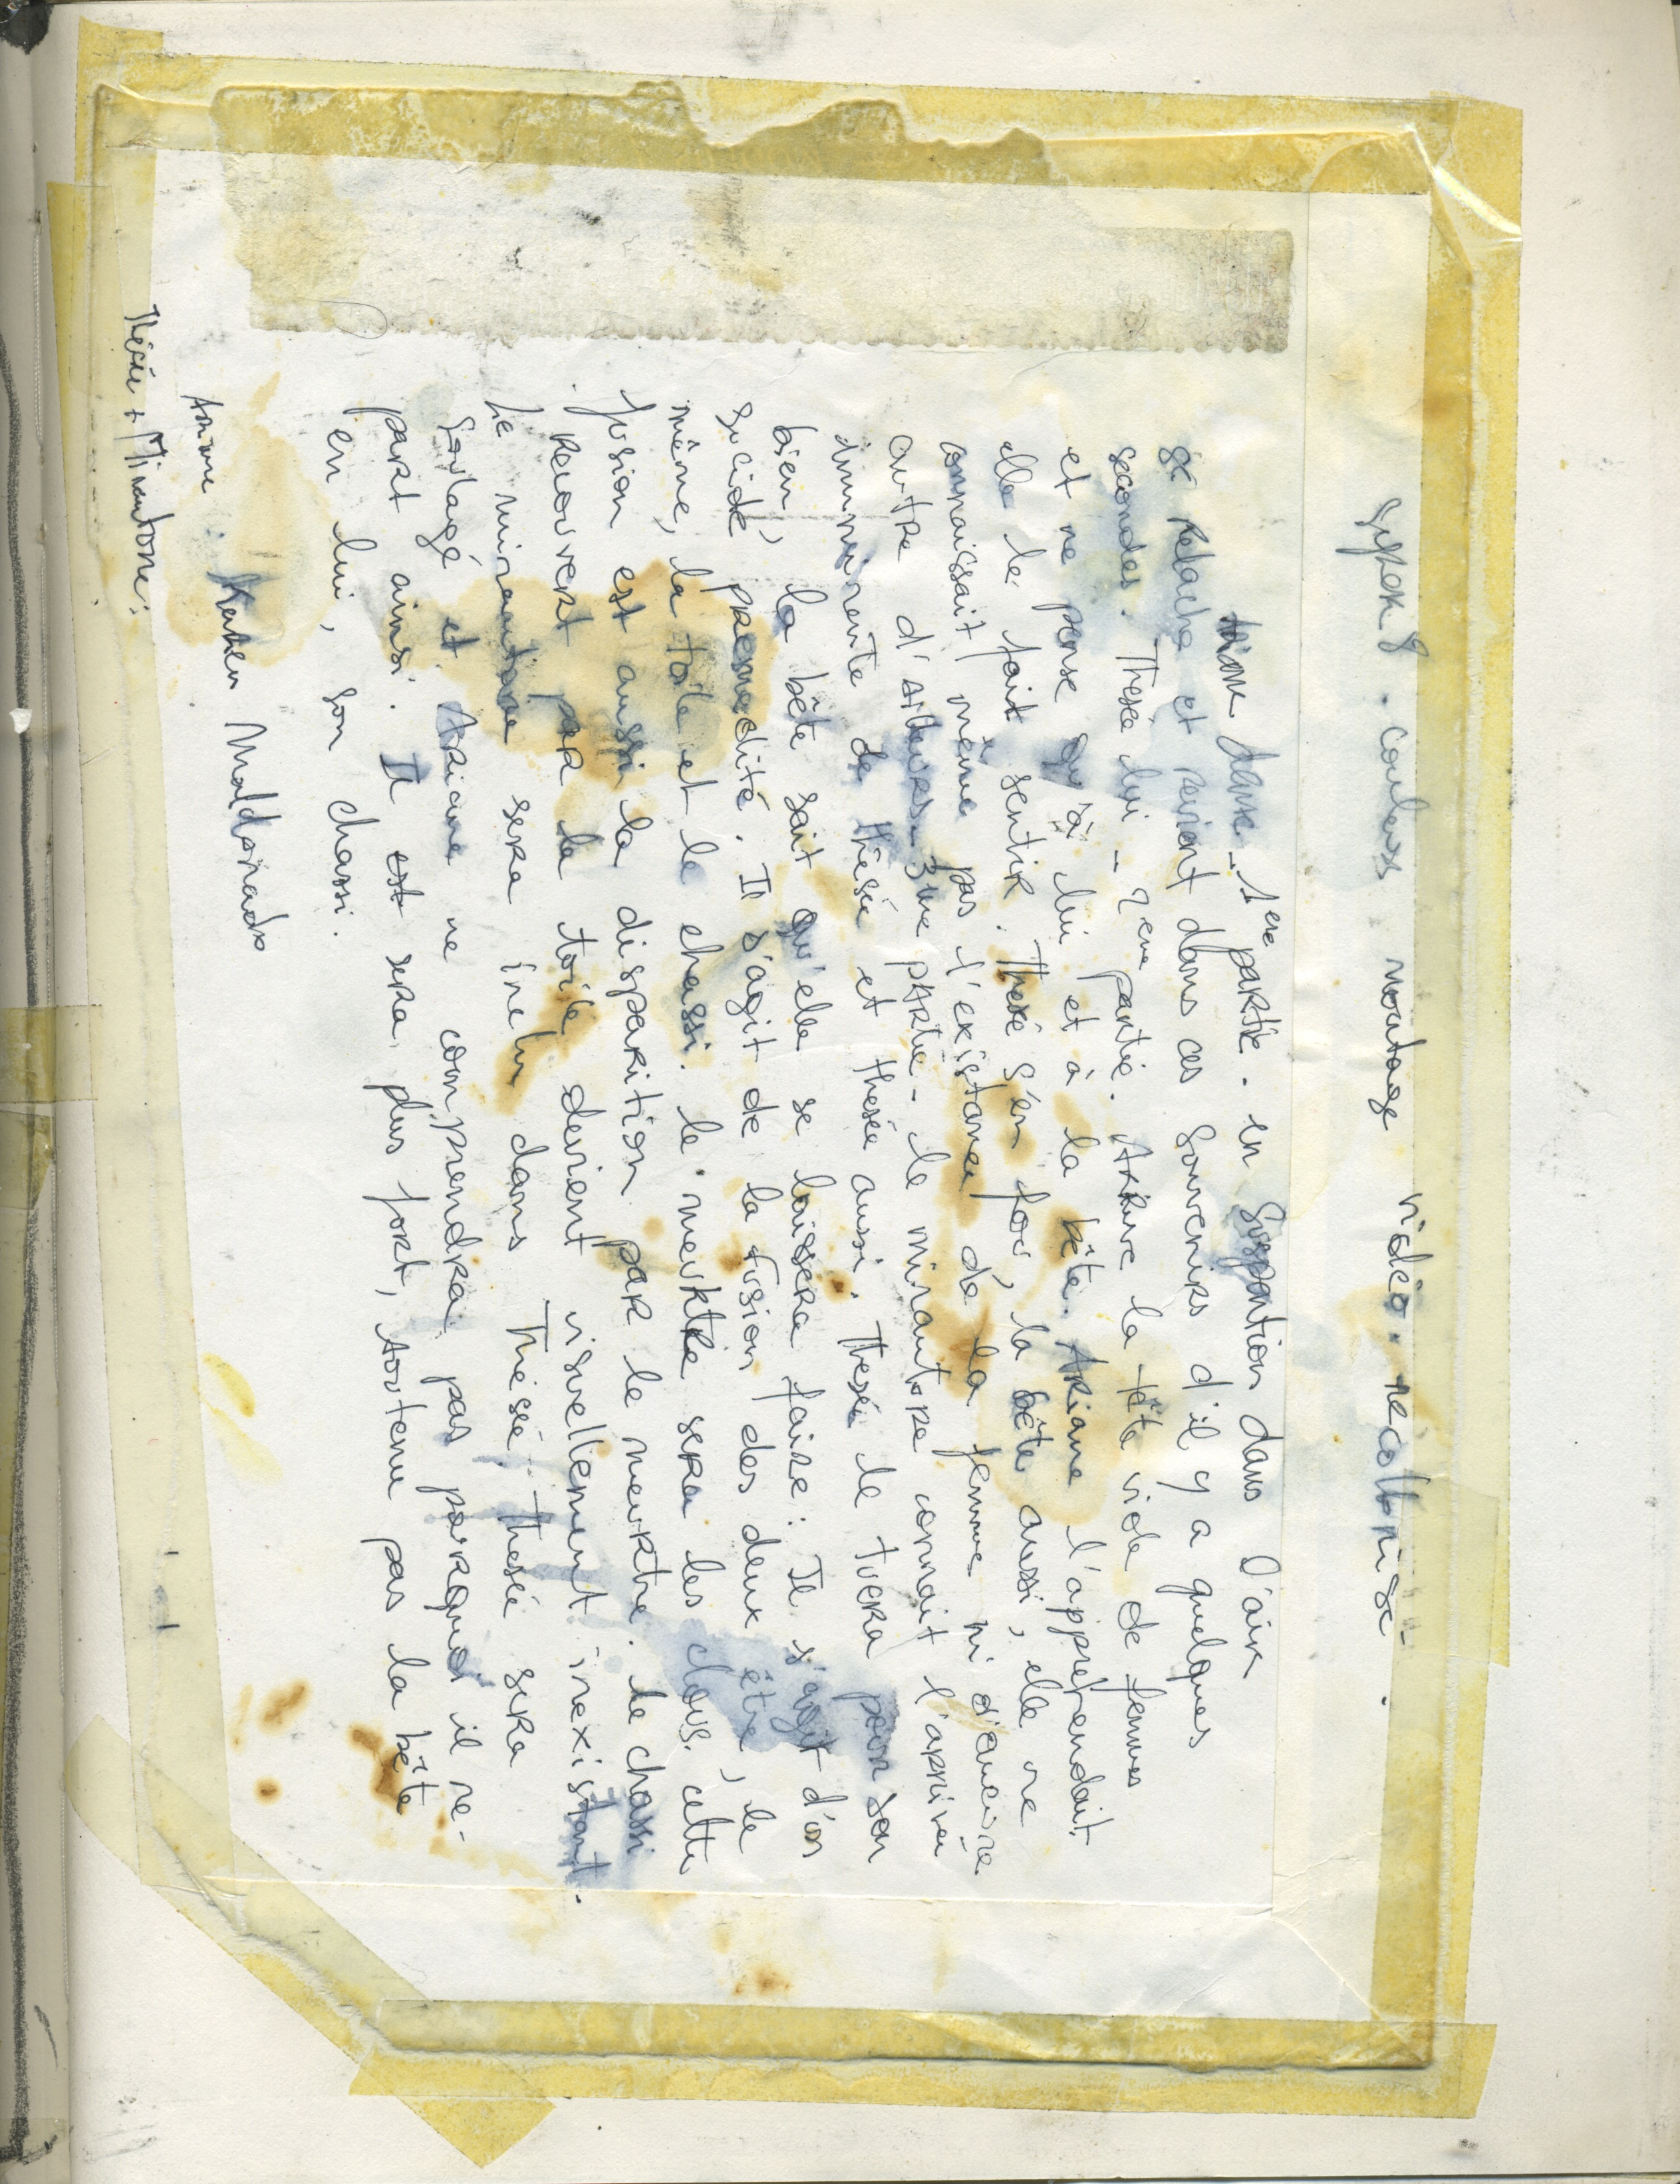 super 8 . couleurs montage vidéo. necolbrise.
danse - 1ere partie. en suspention dans l'air
se relache et revient dans ces souvenirs d'il y a quelques
secondes. Thésée lui - 2eme partie. Arrive la tête vide de femmes
et ne pense qu'à lui et à la bête. Ariane l'appréhendait
elle le fait sentir. Thesé s'en fou, la bête aussi, elle ne
connaissait même pas l'existance de la femme ni d'aucune
autre d'ailleurs - 3me partie - le minautore connait l'arrivée
imminente de thésée et thesée aussi. Thesée le tuera pour son
bien, la bête sait qu'elle se laissera faire : Il s'agit d'un
suicide premedité. Il s'agit de la fusion des deux être, le
même, la toile et le chassi. le meurtre sera les clous. cette
fusion est aussi la disparition par le meurtre. le chassi
recouvert par la toile devient visuellement inexistant.
le minautore sera inclu dans Thésée. Thesée sera
soulagé et Ariane ne comprendra pas pourquoi il re-
part ainsi. Il est sera plus fort, soutenu par la bête
en lui, son chassi.
Maldonado
Thésée + Minautore :